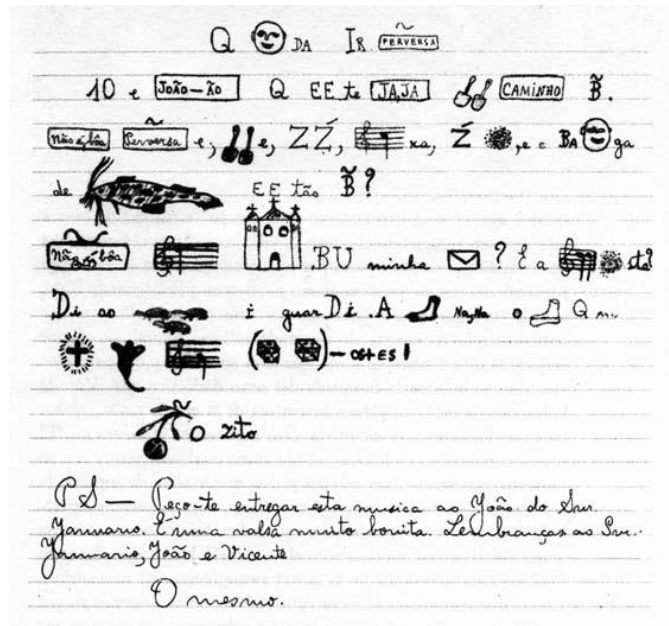 Q DA IR PERVERSA
10 e JOÃO—ÃO Q EE te JA,JA CAMINHO B̃.
Não é bôa Perversa e, e, Z Ź, xa, Ź , e e BA ga
de EE tão B̃?
Não é bôa BU minha ? E a sta?
Di ao i guar Di . A Na,Na o Q m..
( ) — OSTES!
O zito
P S — Peço-te entregar esta musica ao João do Snr.
Januario. É uma valsa muito bonita. Lembranças ao Snr.
Januario, João e Vicente
O mesmo.